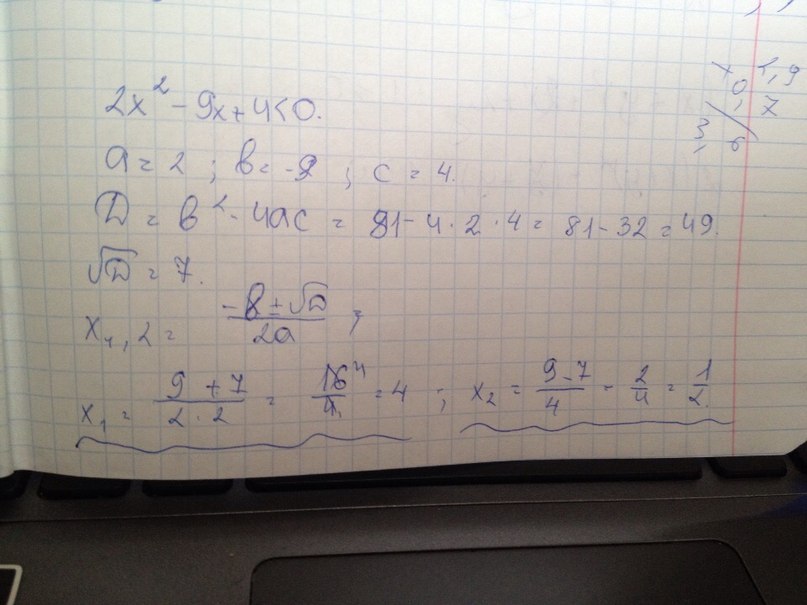 2x² - 9x + 4 < 0.
a = 2 ; b = -9 ; c = 4.
D = b² - 4ac = 81 - 4 · 2 · 4 = 81 - 32 = 49.
√D = 7.
x₁,₂ = (-b ± √D)/(2a) ;
x₁ = (9 + 7)/(2 · 2) = 16/4 = 4 ; x₂ = (9 - 7)/4 = 2/4 = 1/2.